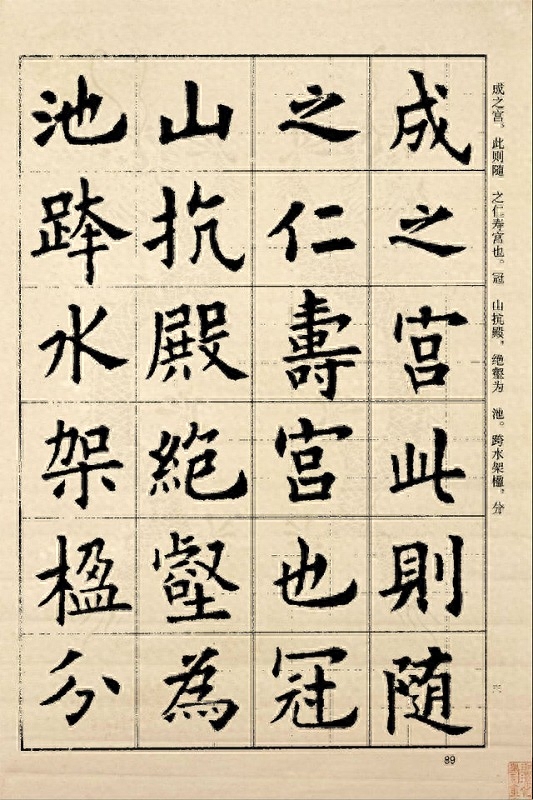 成之宫。此则随 之仁寿宫也。冠 山抗殿，绝壑为 池。跨水架楹，分
成之宮此則随
之仁壽宮也冠
山抗殿絶壑為
池跨水架楹分
89